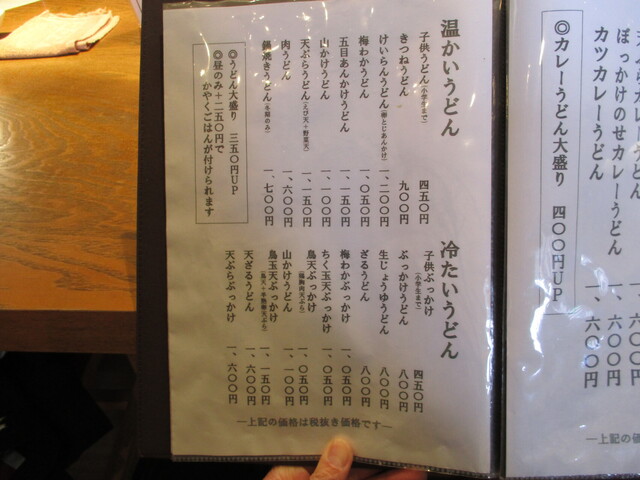 ◎カレーうどん大盛り 四〇〇円UP
カツカレーうどん 一、六〇〇円
ぼっかけのせカレーうどん 一、六〇〇円
―上記の価
温かいうどん
子供うどん(小学生まで) 四五〇円
きつねうどん 九〇〇円
けいらんうどん(卵とじあんかけ) 一、二〇〇円
梅わかうどん 一、〇五〇円
五目あんかけうどん 一、一五〇円
山かけうどん 一、一〇〇円
天ぷらうどん(えび天+野菜天) 一、一五〇円
肉うどん 一、六〇〇円
鍋焼きうどん(冬期のみ) 一、七〇〇円
◎うどん大盛り 三五〇円UP
◎昼のみ+二五〇円で
かやくごはんが付けられます
冷たいうどん
子供ぶっかけ(小学生まで) 四五〇円
ぶっかけうどん 八〇〇円
生じょうゆうどん 八〇〇円
ざるうどん 八〇〇円
梅わかぶっかけ 一、〇五〇円
ちく玉天ぶっかけ 一、〇五〇円
鳥天ぶっかけ(鶏胸肉天ぷら) 一、〇五〇円
山かけうどん 一、一〇〇円
鳥玉天ぶっかけ(鳥天+半熟卵天ぷら) 一、一五〇円
天ざるうどん 一、六〇〇円
天ぷらぶっかけ 一、六〇〇円
―上記の価格は税抜き価格です―